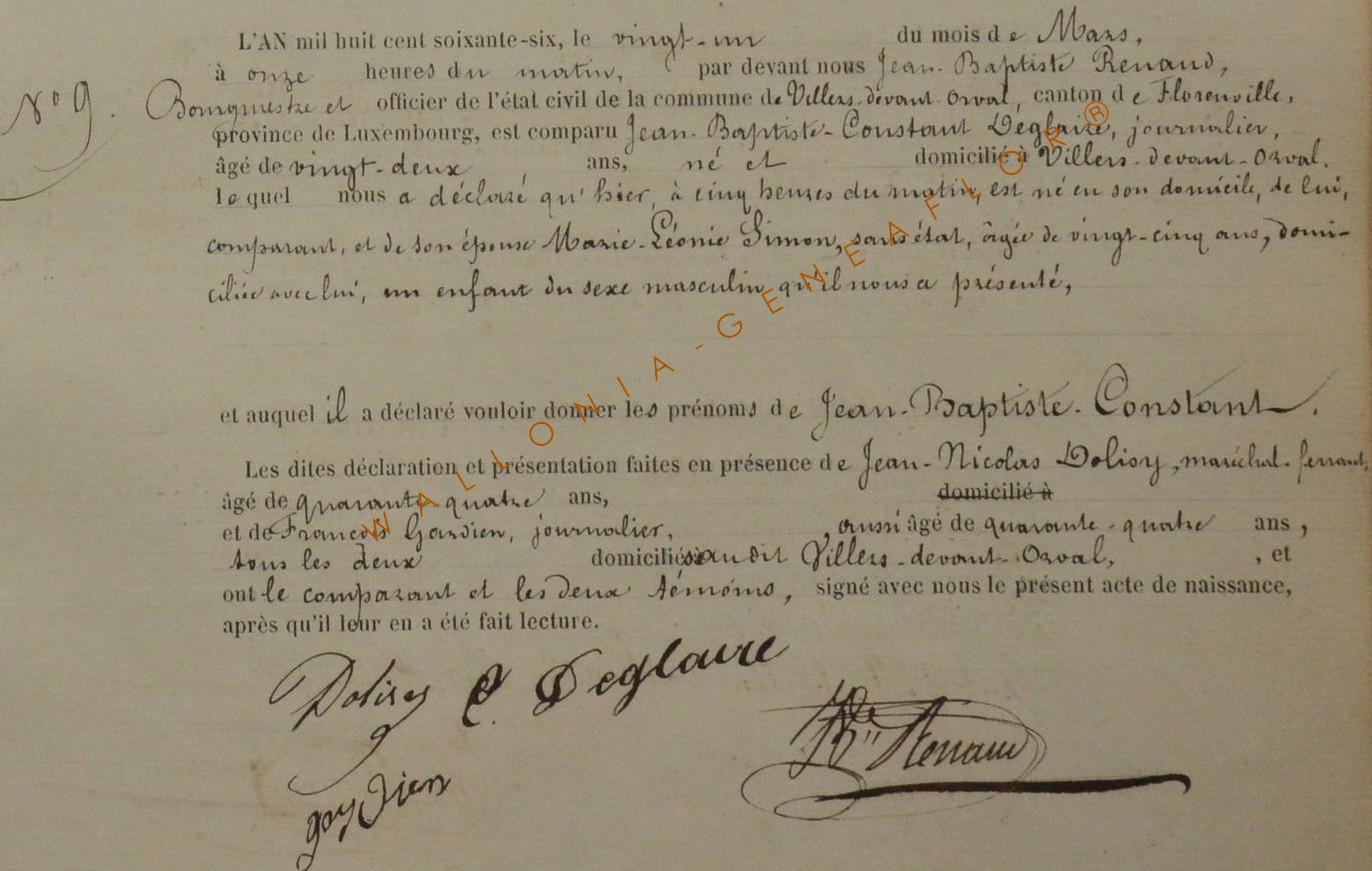 L'AN mil huit cent soixante-six, le vingt-un du mois de Mars,
à onze heures du matin, par devant nous Jean-Baptiste Renaud,
N° 9. Bourgmestre et officier de l'état civil de la commune de Villers-devant-Orval, canton de Florenville,
province de Luxembourg, est comparu Jean-Baptiste-Constant Deglaire, journalier,
âgé de vingt-deux ans, né et domicilié à Villers-devant-Orval,
lequel nous a déclaré qu'hier, à cinq heures du matin, est né en son domicile, de lui,
comparant, et de son épouse Marie-Léonie Simon, sans état, âgée de vingt-cinq ans, domi-
ciliée avec lui, un enfant du sexe masculin qu'il nous a présenté,
et auquel il a déclaré vouloir donner les prénoms de Jean-Baptiste-Constant.
Les dites déclaration et présentation faites en présence de Jean-Nicolas Dolisy, maréchal-ferrant,
âgé de quarante-quatre ans, domicilié à
et de François Gardien, journalier, , aussi âgé de quarante-quatre ans,
tous les deux domiciliés au dit Villers-devant-Orval, , et
ont le comparant et les deux témoins, signé avec nous le présent acte de naissance,
après qu'il leur en a été fait lecture.
Dolisy C. Deglaire
Renaud
gardien
WALLONIA-GENEAFLOR®